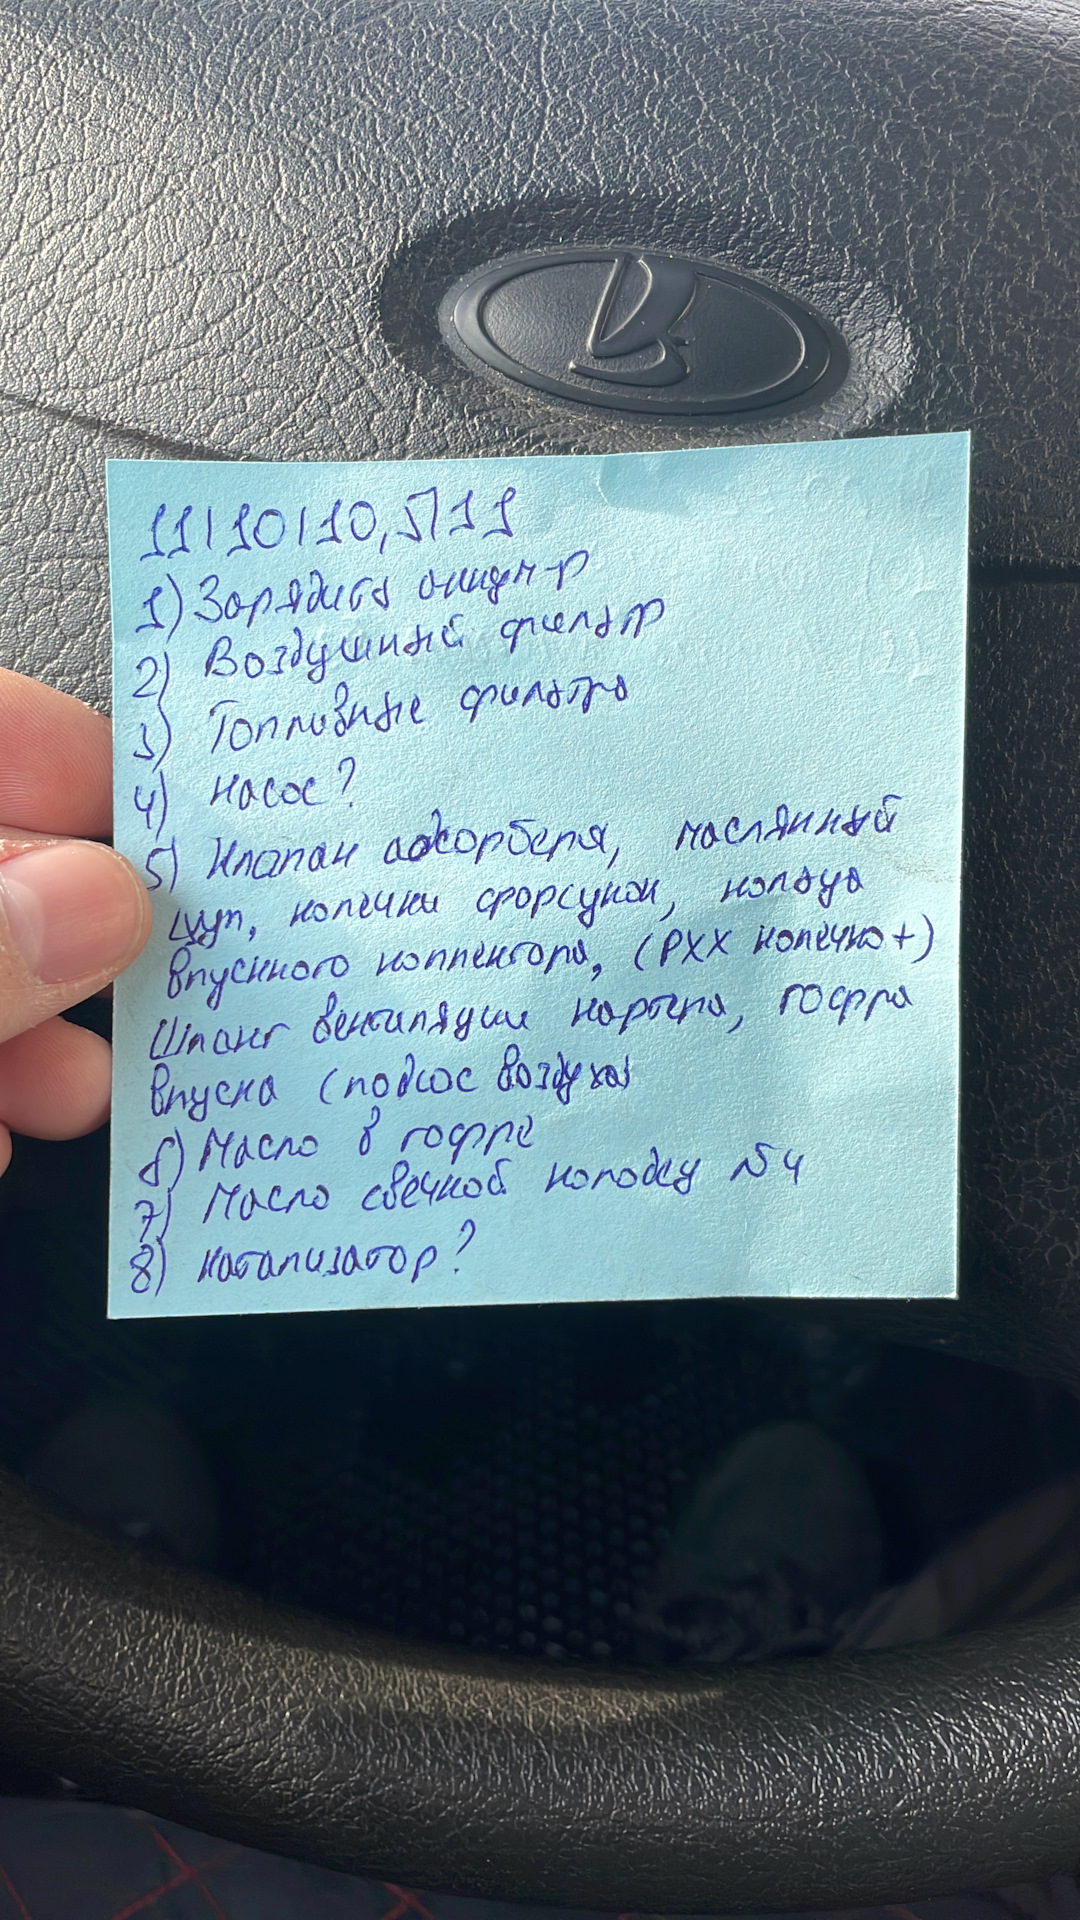 11/10/10,5/11
1) Зарядить аккум-р
2) Воздушный фильтр
3) Топливные фильтра
4) Насос?
5) Клапан адсорбера, маслянный
щуп, колечки форсунок, кольца
впускного коллектора, (РХХ колечко+)
Шланг вентиляции картера, гофра
впуска (подсос воздуха)
6) Масло в гофре
7) Масло свечной колодец №4
8) Катализатор?